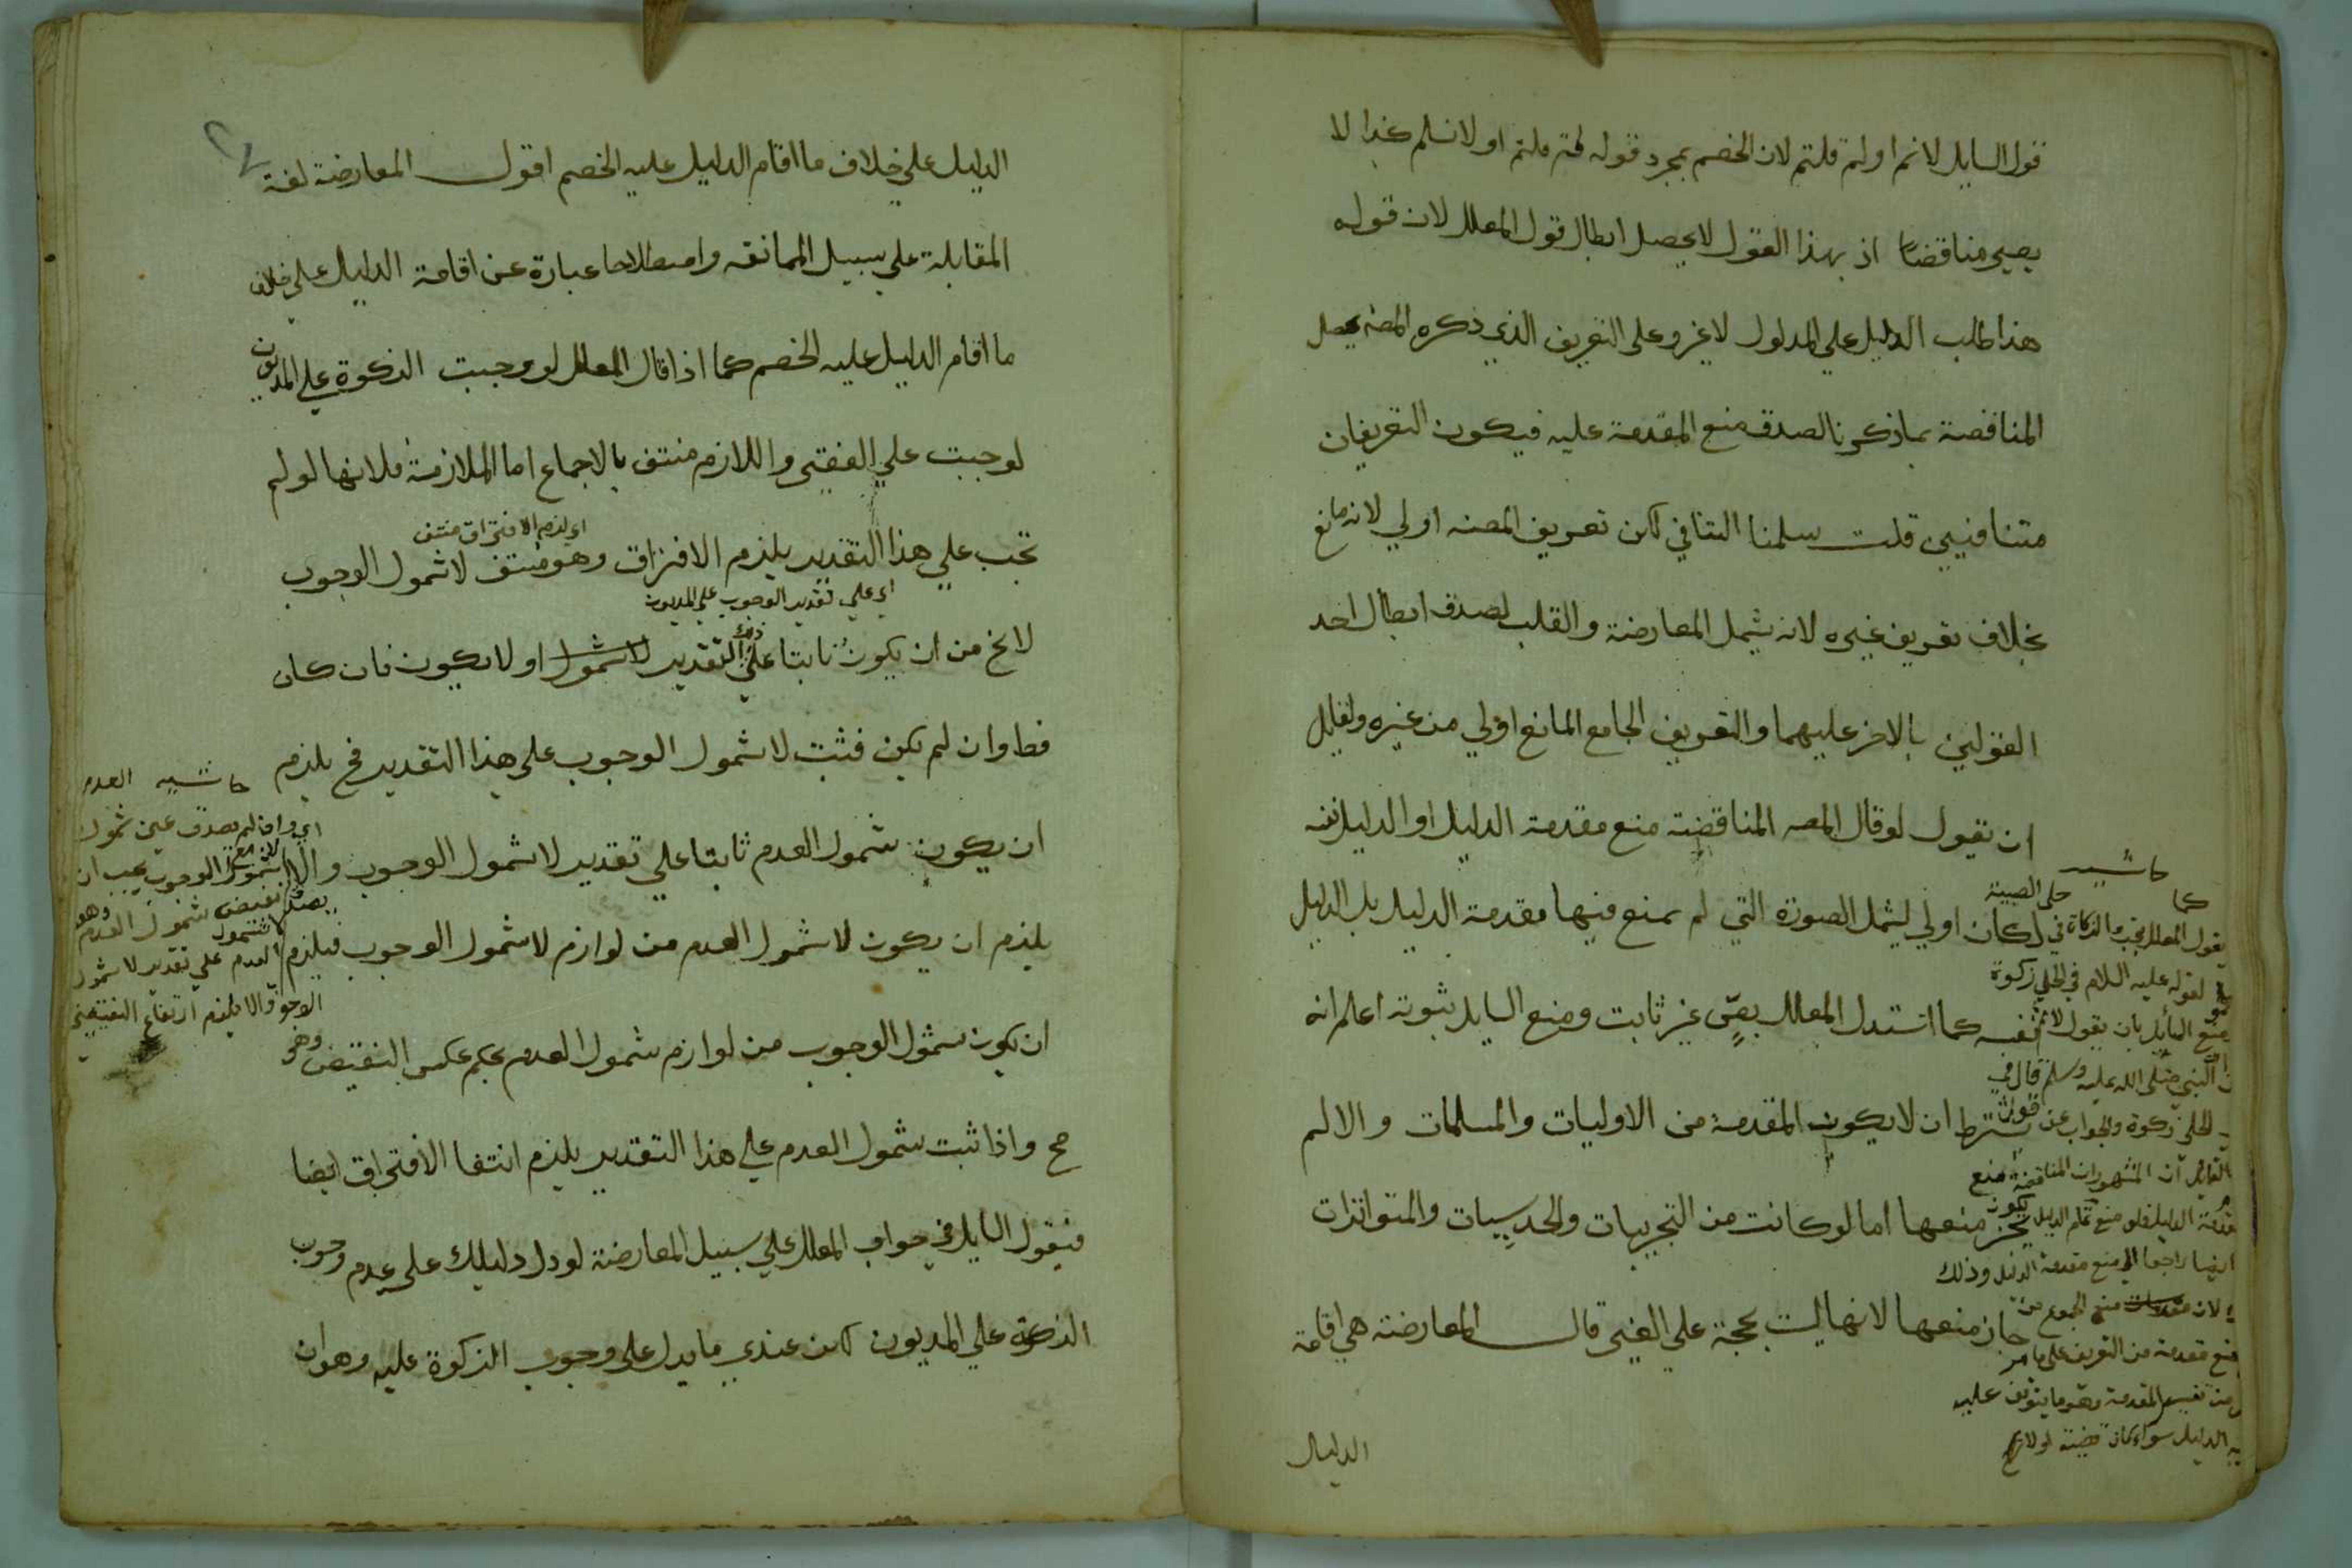 قول السايل لانم او لم قلتم لان الخصم بمجرد قوله لم قلتم او لانسلم غدا لا
يصير مناقضا اذ بهذا القول لا يحصل ابطال قول المعلل لان قوله
هذا طلب الدليل علي المدلول لا غير وعلى التعريف الذي ذكره المصنه يحصل
المناقضة بما ذكرنا لصدق منع المقدمة عليه فيكون التعريفان
متنافيين قلت سلمنا التنافي لكن تعريف المصنه اولي لانه مانع
بخلاف تعريف غيره لانه يشمل المعارضة والقلب لصدق ابطال احد
القولين بالاخر عليهما والتعريف الجامع المانع اولي من غيره ولقايل
ان يقول لو قال المصه المناقضة منع مقدمة الدليل او الدليل نفسه
لكان اولي ليشمل الصورة التي لم يمنع فيها مقدمة الدليل بل الدليل
نفسه كما استدل المعلل بنص غير ثابت ومنع السايل ثبوته اعلم انه
يشترط ان لا يكون المقدمة من الاوليات والمسلمات والا لم
يجز منعها اما لو كانت من التجربيات والحدسيات والمتواترات
جاز منعها لانها ليست بحجة علي الغير قال المعارضة هي اقامة
الدليل
حاشيه
كما
يقول المعلل يجب الزكاة في حلي الصبية
لقوله عليه السلام في الحلي زكوة
منع السايل بان يقول لانم
ان النبي صلى الله عليه وسلم قال في
الحلي زكوة والجواب عن قول
القايل ان المشهور ان المناقضة منع
مقدمة الدليل فلو منع تمام الدليل يكون
ايضا راجعا الي منع مقدمة الدليل وذلك
لان منع المجموع من
منع مقدمة من التعريف على ما مر
من تفسير المقدمة وهو ما يتوقف عليه
الدليل سواء كان
الدليل علي خلاف ما اقام الدليل عليه الخصم اقول المعارضة لغة
المقابلة علي سبيل الممانعة واصطلاحا عبارة عن اقامة الدليل علي خلاف
ما اقام الدليل عليه الخصم كما اذا قال المعلل لو وجبت الزكوة علي المديون
لوجبت علي الفقير واللازم منتف بالاجماع اما الملازمة فلانها لو لم
اي لزم الافتراق منتف
تجب علي هذا التقدير يلزم الافتراق وهو منتف لا شمول الوجوب
اي علي تقدير الوجوب علي المديون
لا يخ من ان يكون ثابتا علي ذلك التقدير لا شمول او لا يكون فان كان
فظ وان لم يكن فثبت لا شمول الوجوب على هذا التقدير فح يلزم
ان يكون شمول العدم ثابتا علي تقدير لا شمول الوجوب والا
يلزم ان يكون لا شمول العدم من لوازم لا شمول الوجوب فيلزم
ان يكون شمول الوجوب من لوازم شمول العدم بحكم عكس النقيض وهو
مح واذا ثبت شمول العدم علي هذا التقدير يلزم انتفا الافتراق ايضا
فيقول السايل في جواب المعلل علي سبيل المعارضة لو دل دليلك على عدم وجوب
الزكوة علي المديون لكن عندي ما يدل على وجوب الزكوة عليه وهو ان
حاشيه العدم
اي وان لم يصدق عين شمول
لا شمول الوجوب يجب ان
يصدق نقيض شمول العدم وهو
لا شمول
العدم علي تقدير لا شمول
الوجوب والا يلزم ارتفاع النقيضين